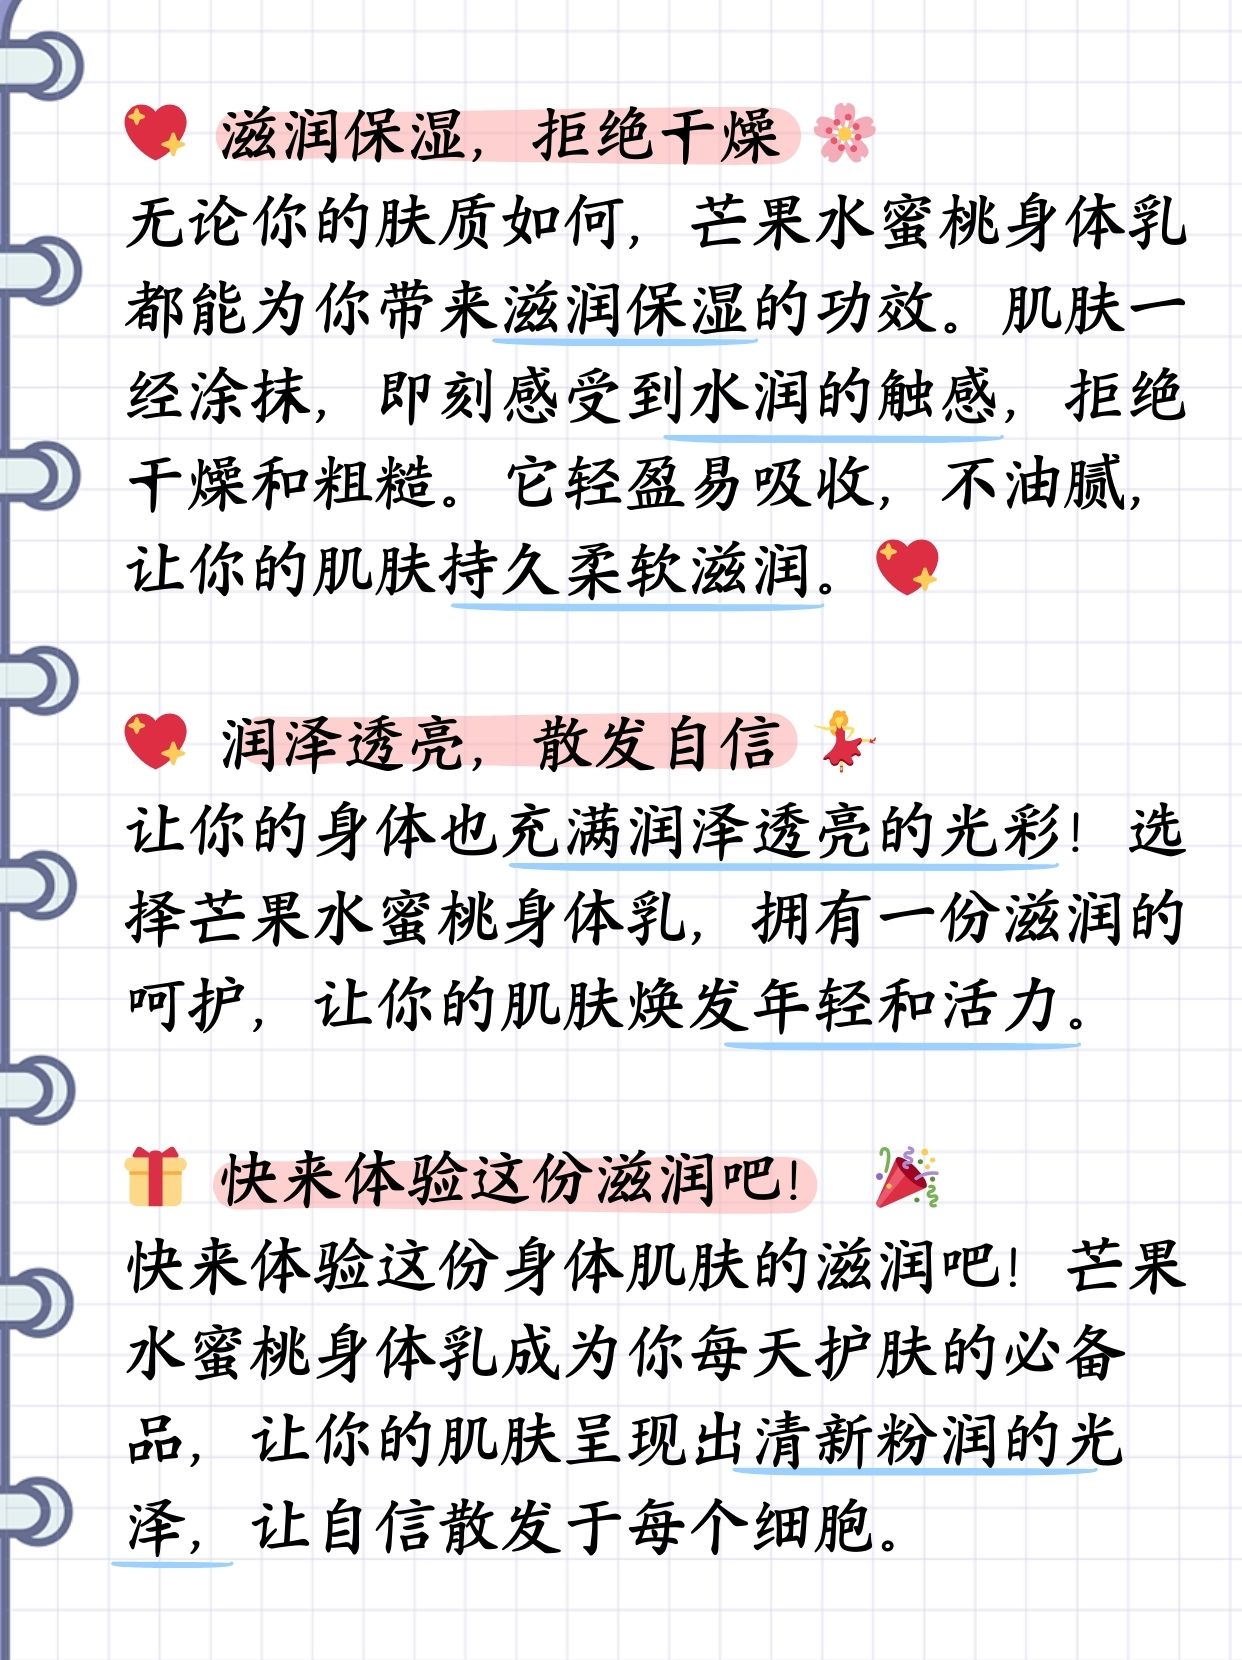 💖 滋润保湿，拒绝干燥 🌸
无论你的肤质如何，芒果水蜜桃身体乳
都能为你带来滋润保湿的功效。肌肤一
经涂抹，即刻感受到水润的触感，拒绝
干燥和粗糙。它轻盈易吸收，不油腻，
让你的肌肤持久柔软滋润。💖
💖 润泽透亮，散发自信 💃
让你的身体也充满润泽透亮的光彩！选
择芒果水蜜桃身体乳，拥有一份滋润的
呵护，让你的肌肤焕发年轻和活力。
🎁 快来体验这份滋润吧！ 🎉
快来体验这份身体肌肤的滋润吧！芒果
水蜜桃身体乳成为你每天护肤的必备
品，让你的肌肤呈现出清新粉润的光
泽，让自信散发于每个细胞。